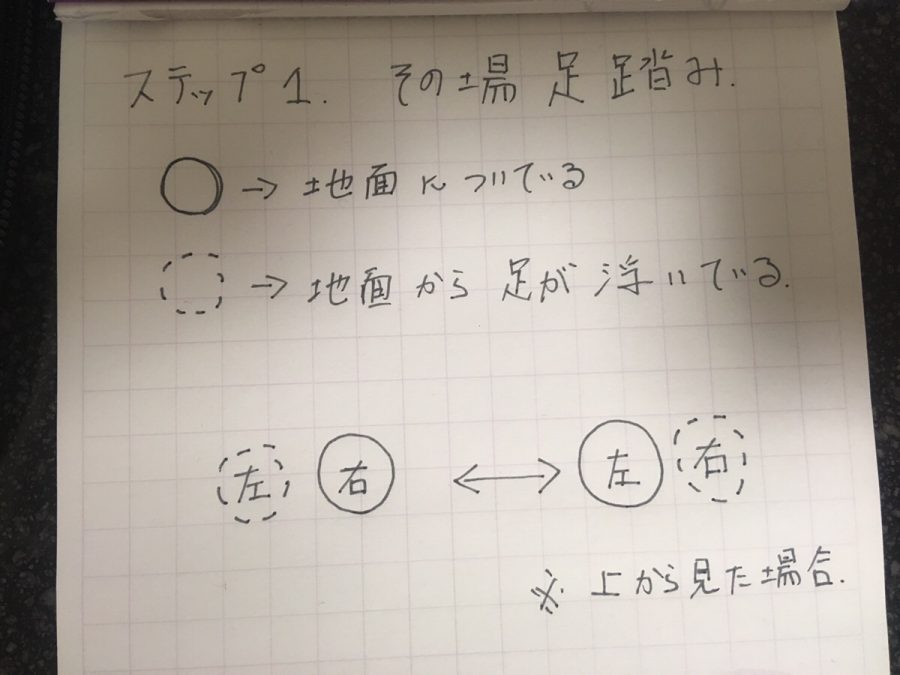 ステップ1. その場足踏み.
○→地面についている
◌→地面から足が浮いている.
左 右 ↔ 左 右
※上から見た場合.